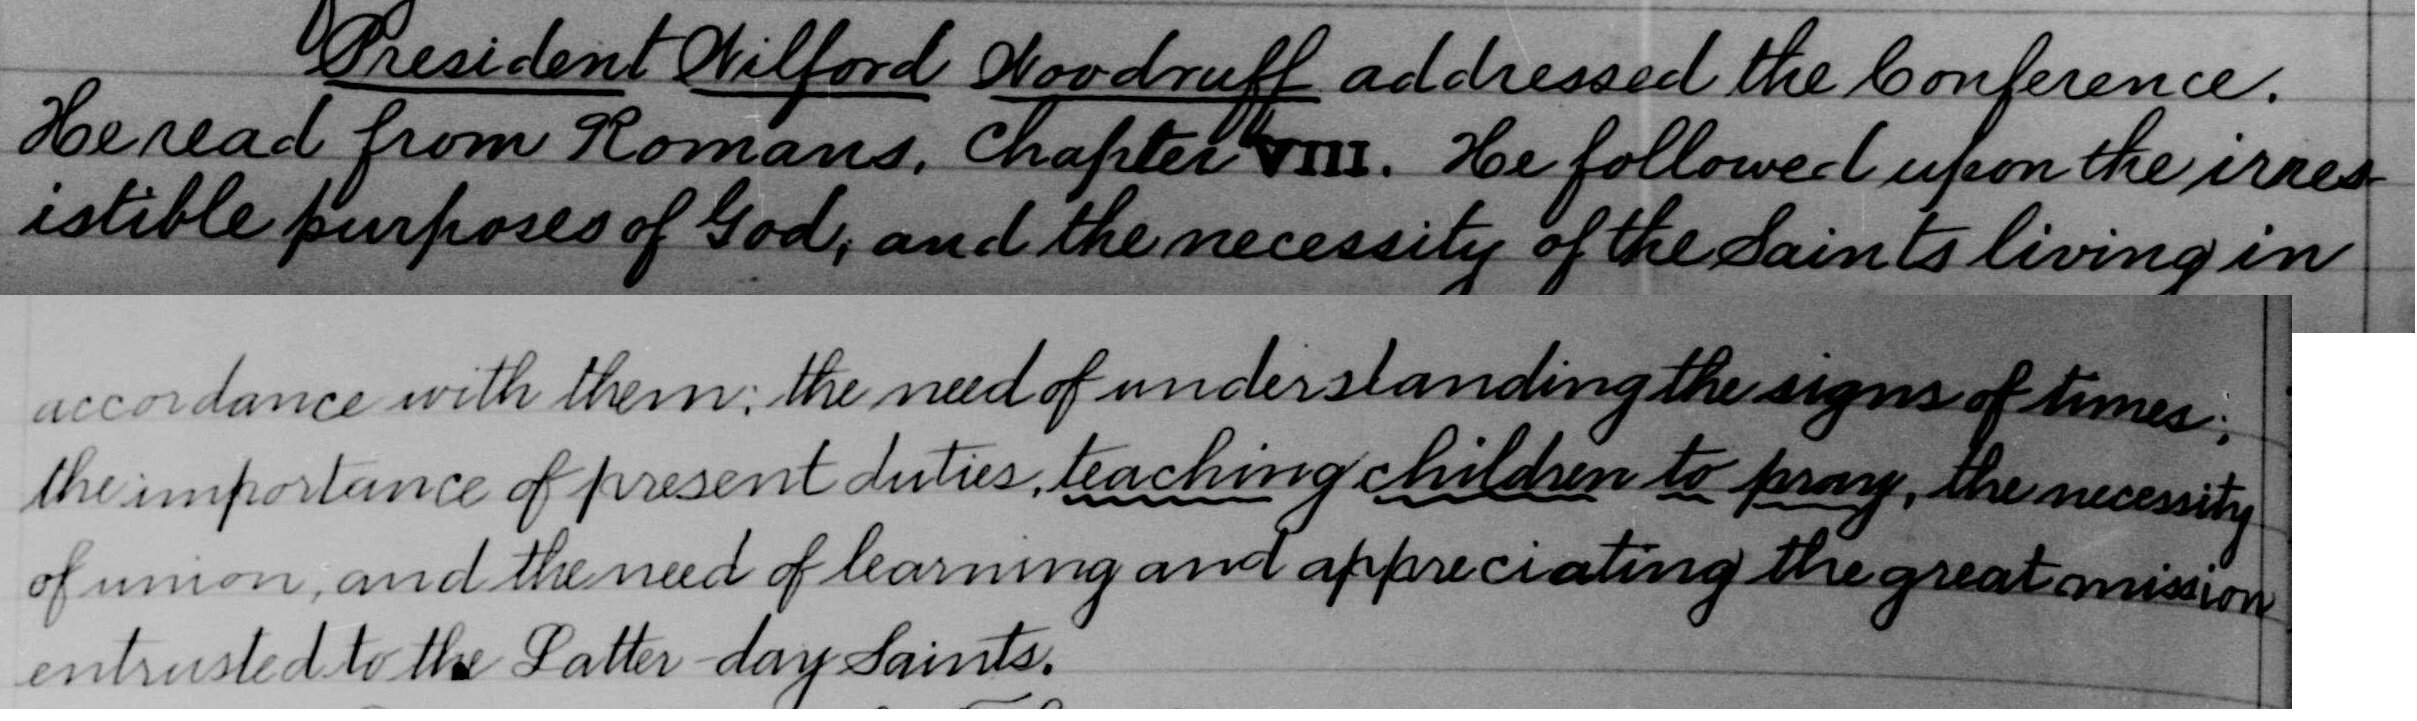 President Wilford Woodruff addressed the Conference.
He read from Romans, Chapter VIII. He followed upon the irres-
istible purposes of God, and the necessity of the Saints living in
accordance with them; the need of understanding the signs of times;
the importance of present duties, teaching children to pray, the necessity
of union, and the need of learning and appreciating the great mission
entrusted to the Latter-day Saints.